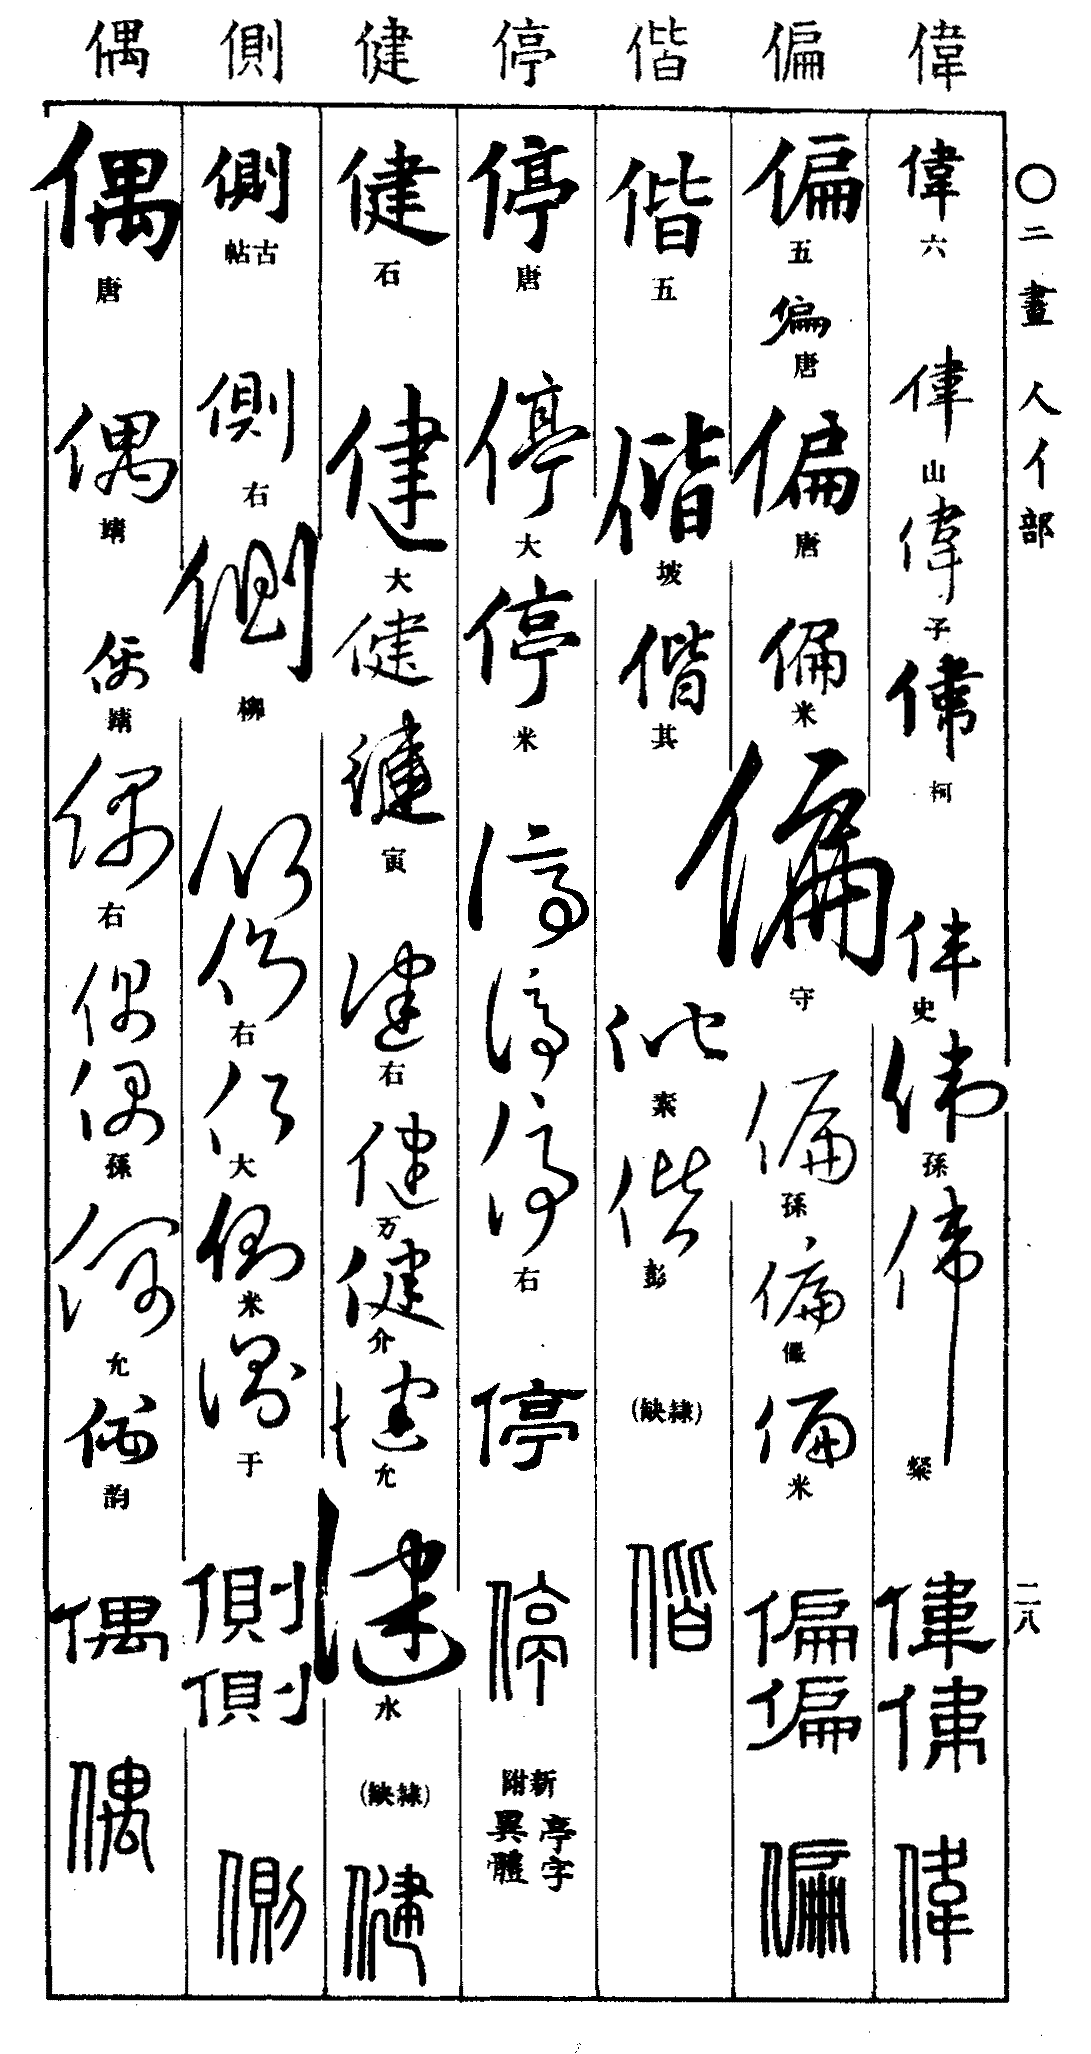 〇二畫 人亻部 二八
偉 偏 偕 停 健 側 偶
偉 六
偉 山
偉 子
偉 柯
偉 史
偉 孫
偉
偉
偉
偉
偏 五
偏 唐
偏 唐
偏 米
偏 守
偏 孫
偏
偏 米
偏
偏
偏
偕 五
偕 坡
偕 其
偕 索
偕 彭
(缺隸)
偕
停 唐
停 大
停 米
停
停
停 右
停
停
新附
亭字
異體
健 石
健 大
健
健 寅
健 右
健 万
健 介
健 允
健 水
(缺隸)
健
側 古帖
側 右
側 柳
側
側 右
側 大
側 米
側 于
側
側
側
偶 唐
偶 靖
偶 靖
偶 右
偶
偶 孫
偶 允
偶 韵
偶
偶